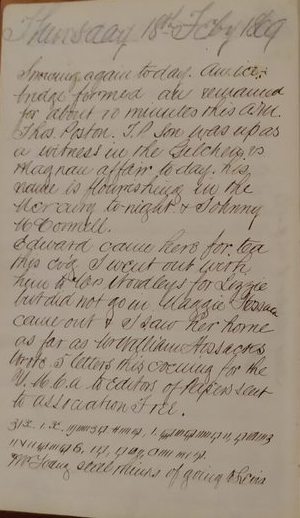 Thursday 18th Feby 1869
Snowing again today. An ice
bridge formed an remained
for about 20 minutes this A.M.
Thos Poston. T.P son was up as
a witness in the Getchell vs
Magnan affair today. his
name is flourishing in the
Mercury to-night & Johnny
McConnell.
Edward came here for tea
this evg I went out with
him to Mrs Wordleys for Lizzie
but did not go in Maggie
came out & I saw her home
as far as Mr William Hossacks
Wrote 5 letters this evening for the
Y.M.C.A to Editors of Papers sent
to association Free.
Mr Young still thinks of going to